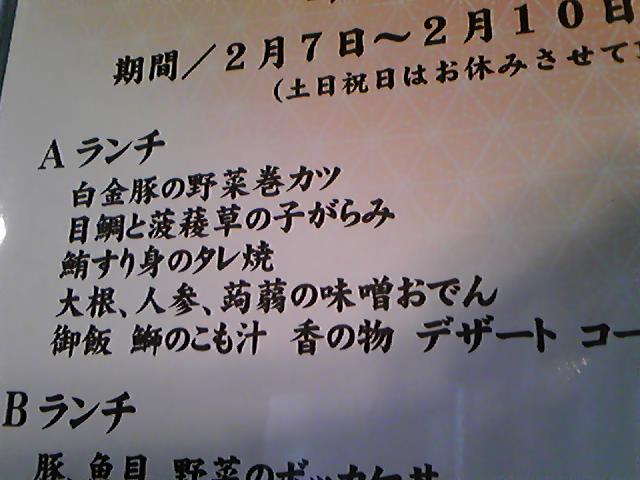 期間／２月７日～２月１０日
(土日祝日はお休みさせて
Aランチ
白金豚の野菜巻カツ
目鯛と菠薐草の子がらみ
鮪すり身のタレ焼
大根、人参、蒟蒻の味噌おでん
御飯 鰤のこも汁 香の物 デザート コー
Bランチ
豚、魚貝、野菜のボッカケサ